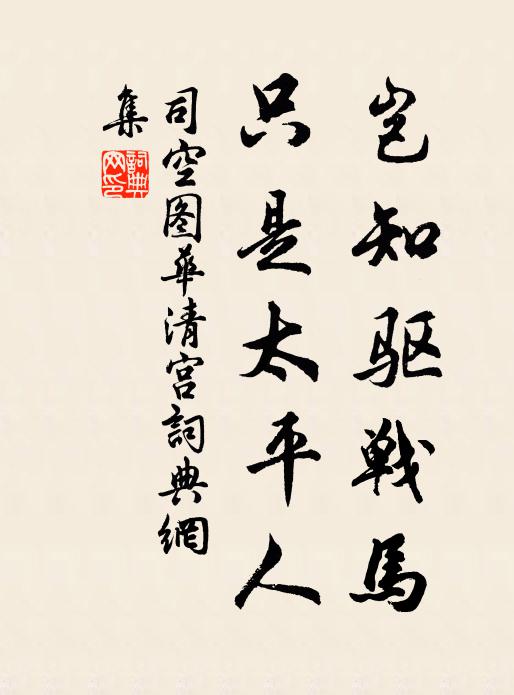 岂知驱戦馬
只是太平人
司空图華清宫詞典網
集
詞典
网印